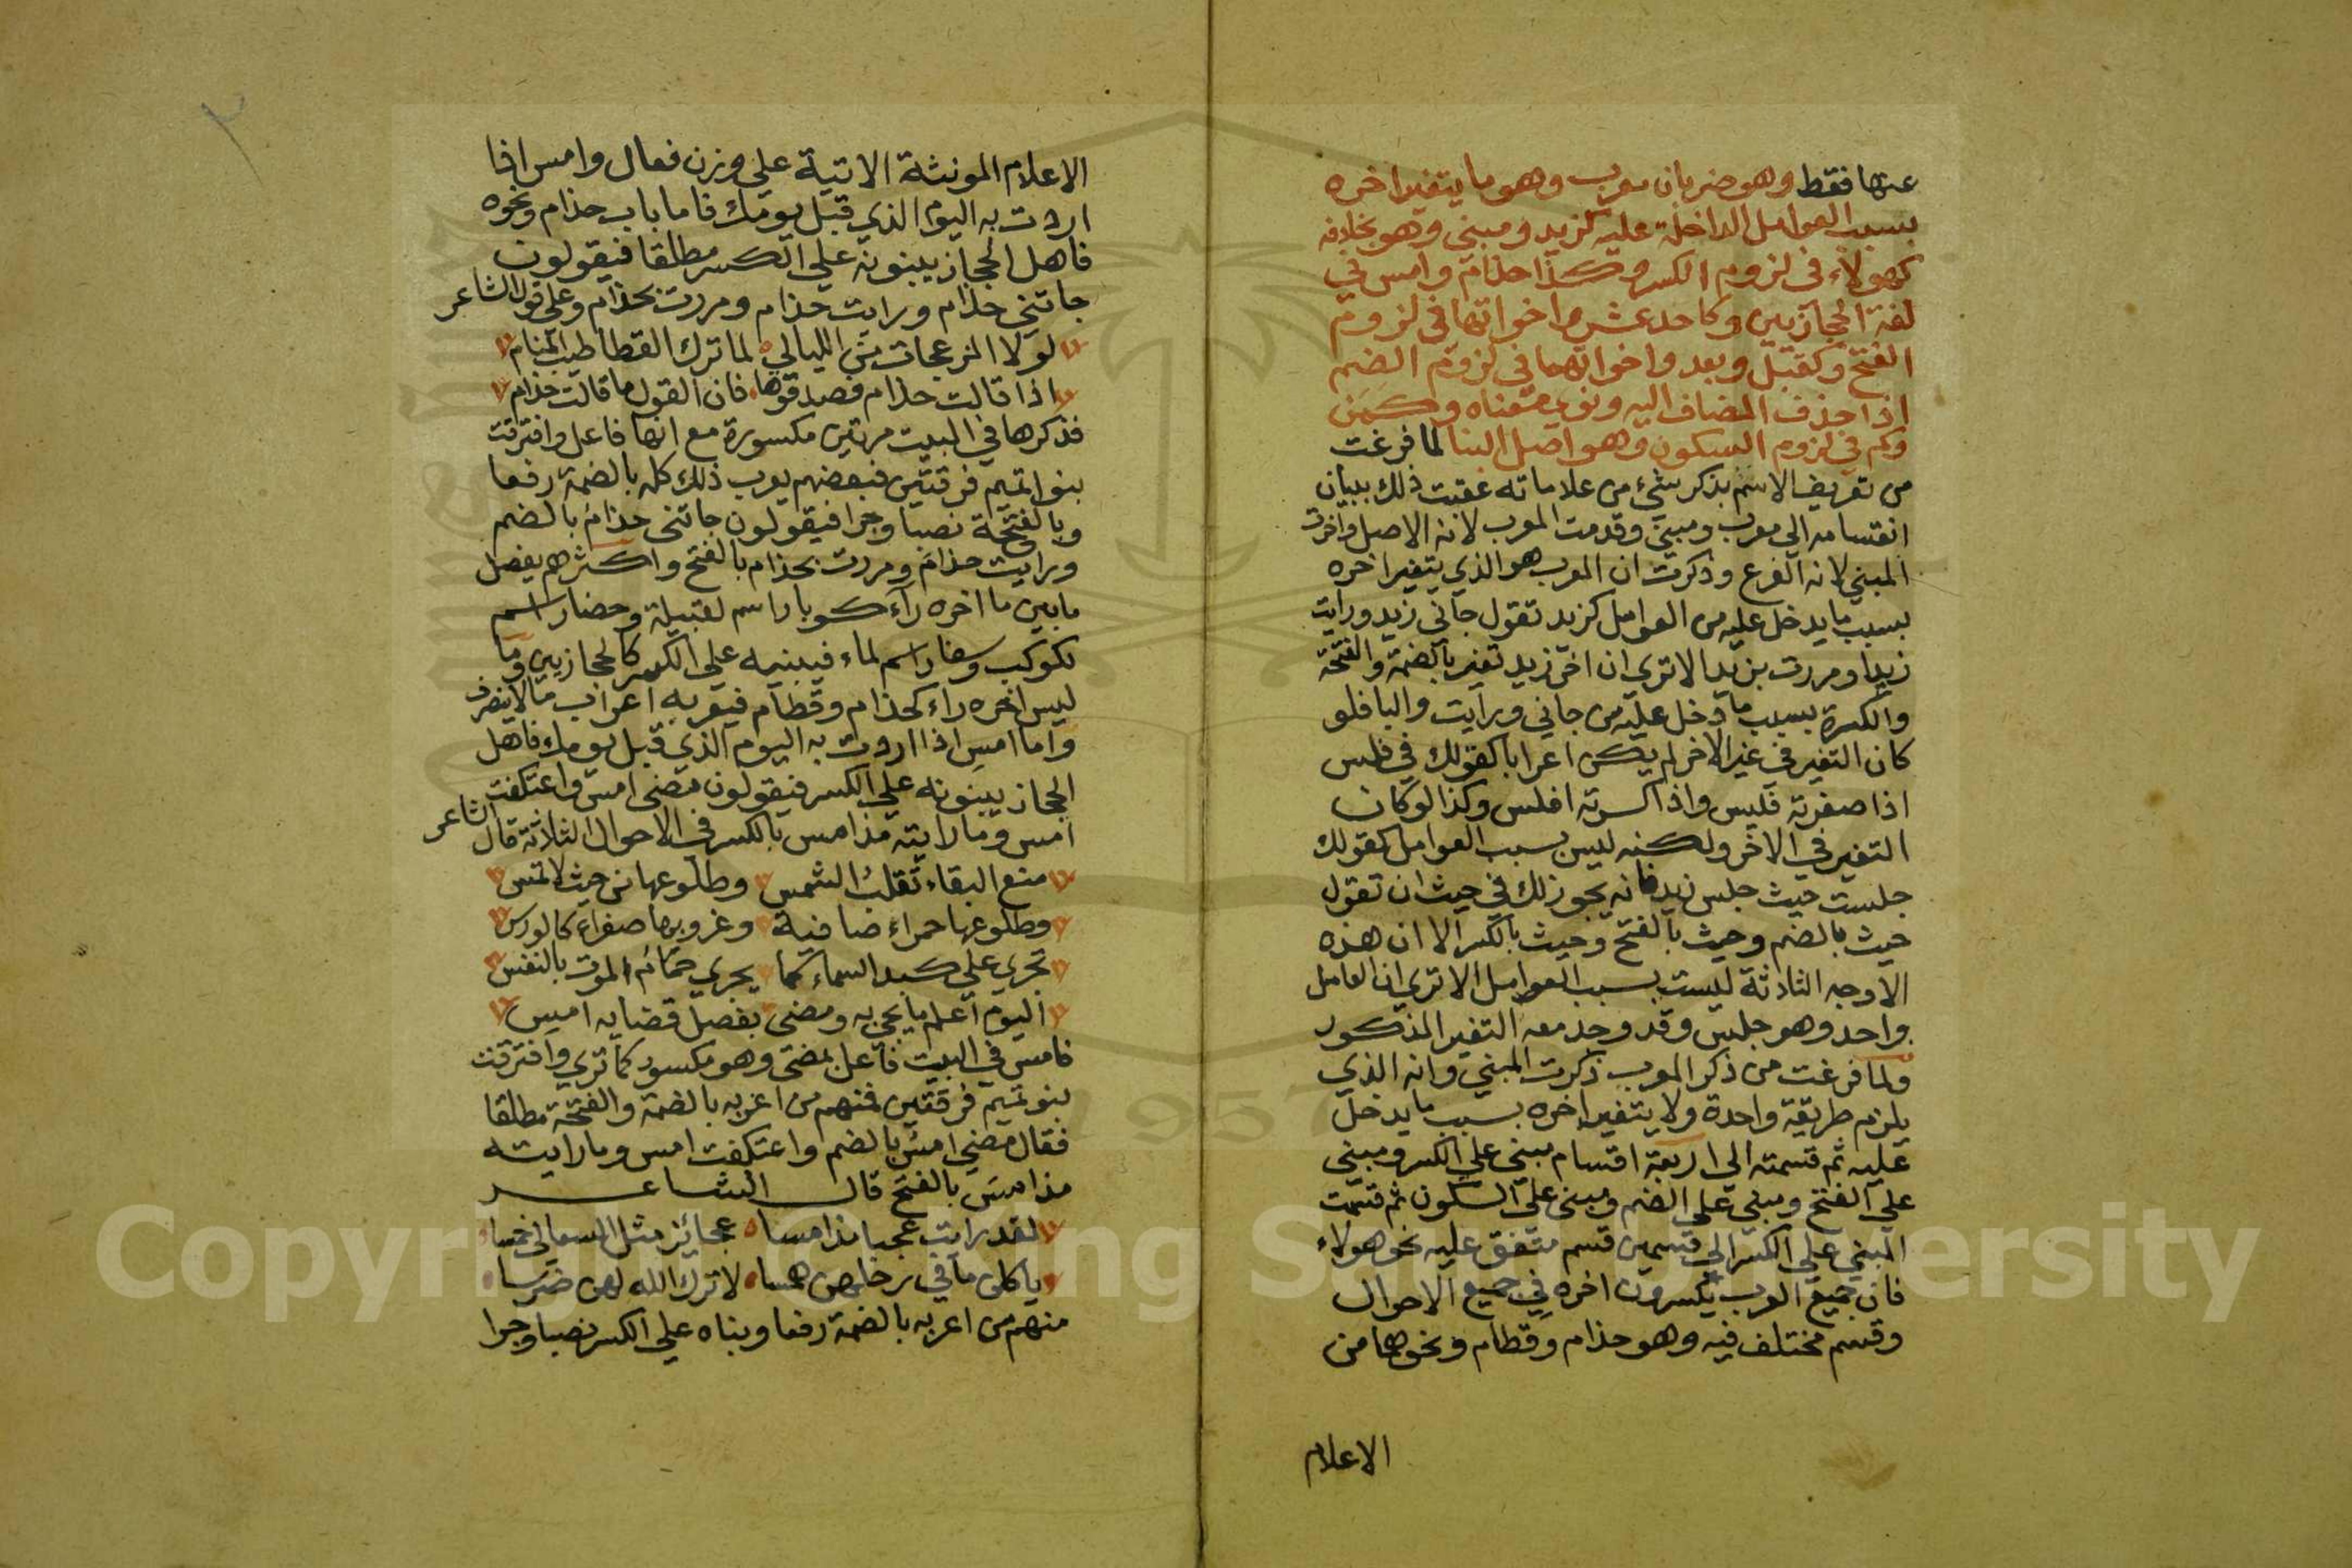 عنها فقط وهو ضربان معرب وهو ما يتغير اخره
بسبب العوامل الداخلة عليه كزيد ومبني وهو بخلافه
كهولاء في لزوم الكسر وكذا حذام وامس في
لغة الحجازيين وكاحد عشر واخواتها في لزوم
الفتح وكقبل وبعد واخواتهما في لزوم الضم
اذا حذف المضاف اليه ونوي معناه وكمن
وكم في لزوم السكون وهو اصل البنا لما فرغت
من تعريف الاسم بذكر شيء من علاماته عقبت ذلك ببيان
انقسامه الى معرب ومبني وقدمت المعرب لانه الاصل واخرت
المبني لانه الفرع وذكرت ان المعرب هو الذي يتغير اخره
بسبب ما يدخل عليه من العوامل كزيد تقول جاني زيد ورايت
زيدا ومررت بزيد الا ترى ان اخر زيد تغير بالضمة والفتحة
والكسرة بسبب ما دخل عليه من جاني ورايت والبا فلو
كان التغير في غير الاخر لم يكن اعرابا كقولك في فلس
اذا صغرته فليس واذا كسرته افلس وكذا لو كان
التغير في الاخر ولكنه ليس بسبب العوامل كقولك
جلست حيث جلس زيد فانه يجوز ذلك في حيث ان تقول
حيث بالضم وحيث بالفتح وحيث بالكسر الا ان هذه
الاوجه الثلاثة ليست بسبب العوامل الا ترى ان العامل
واحد وهو جلس وقد وجد معه التغير المذكور
ولما فرغت من ذكر المعرب ذكرت المبني وانه الذي
يلزم طريقة واحدة ولا يتغير اخره بسبب ما يدخل
عليه ثم قسمته الى اربعة اقسام مبني على الكسر ومبني
على الفتح ومبني على الضم ومبني على السكون ثم قسمت
المبني على الكسر الى قسمين قسم متفق عليه نحو هولاء
فان جميع العرب يكسرون اخره في جميع الاحوال
وقسم مختلف فيه وهو حذام وقطام ونحوهما من
الاعلام
الاعلام المونثة الاتية على وزن فعال وامس اذا
اردت به اليوم الذي قبل يومك فاما باب حذام ونحوه
فاهل الحجاز يبنونه على الكسر مطلقا فيقولون
جاتني حذام ورايت حذام ومررت بحذام وعلى قول الشاعر
لولا المزعجات من الليالي لما ترك القطا طيب المنام
اذا قالت حذام فصدقوها فان القول ما قالت حذام
فذكرها في البيت مرتين مكسورة مع انها فاعل وافترقت
بنو اتميم فرقتين فبعضهم يعرب ذلك كله بالضمة رفعا
وبالفتحة نصبا وجرا فيقولون جاتني حذام بالضم
ورايت حذام ومررت بحذام بالفتح واكثرهم يفصل
ما بين ما اخره راء كوبار اسم لقبيلة وحضار اسم
لكوكب وسفار اسم لماء فيبنيه على الكسر كالحجازيين وما
ليس اخره راء كحذام وقطام فيعربه اعراب مالا ينصرف
واما امس اذا اردت به اليوم الذي قبل يومك فاهل
الحجاز يبنونه على الكسر فيقولون مضى امس واعتكفت
امس وما رايته مذ امس بالكسر في الاحوال الثلاثة قال الشاعر
منع البقاء تقلب الشمس وطلوعها من حيث لا تمس
وطلوعها حمراء صافية وغروبها صفراء كالورس
تجري على كبد السماء كما يجري حمام الموت بالنفس
اليوم اعلم ما يجي به ومضى بفصل قضايه امس
فامس في البيت فاعل لمضى وهو مكسور كما ترى وافترقت
بنو تميم فرقتين فمنهم من اعربه بالضمة والفتحة مطلقا
فقال مضى امس بالضم واعتكفت امس وما رايته
مذ امس بالفتح قال الشاعر
لقد رايت عجبا مذ امسا عجائز مثل السعالي خمسا
ياكلن ما في رحلهن همسا لا ترك الله لهن ضرسا
منهم من اعربه بالضمة رفعا وبناه على الكسر نصبا وجرا
Copyright © King Saud University
1957